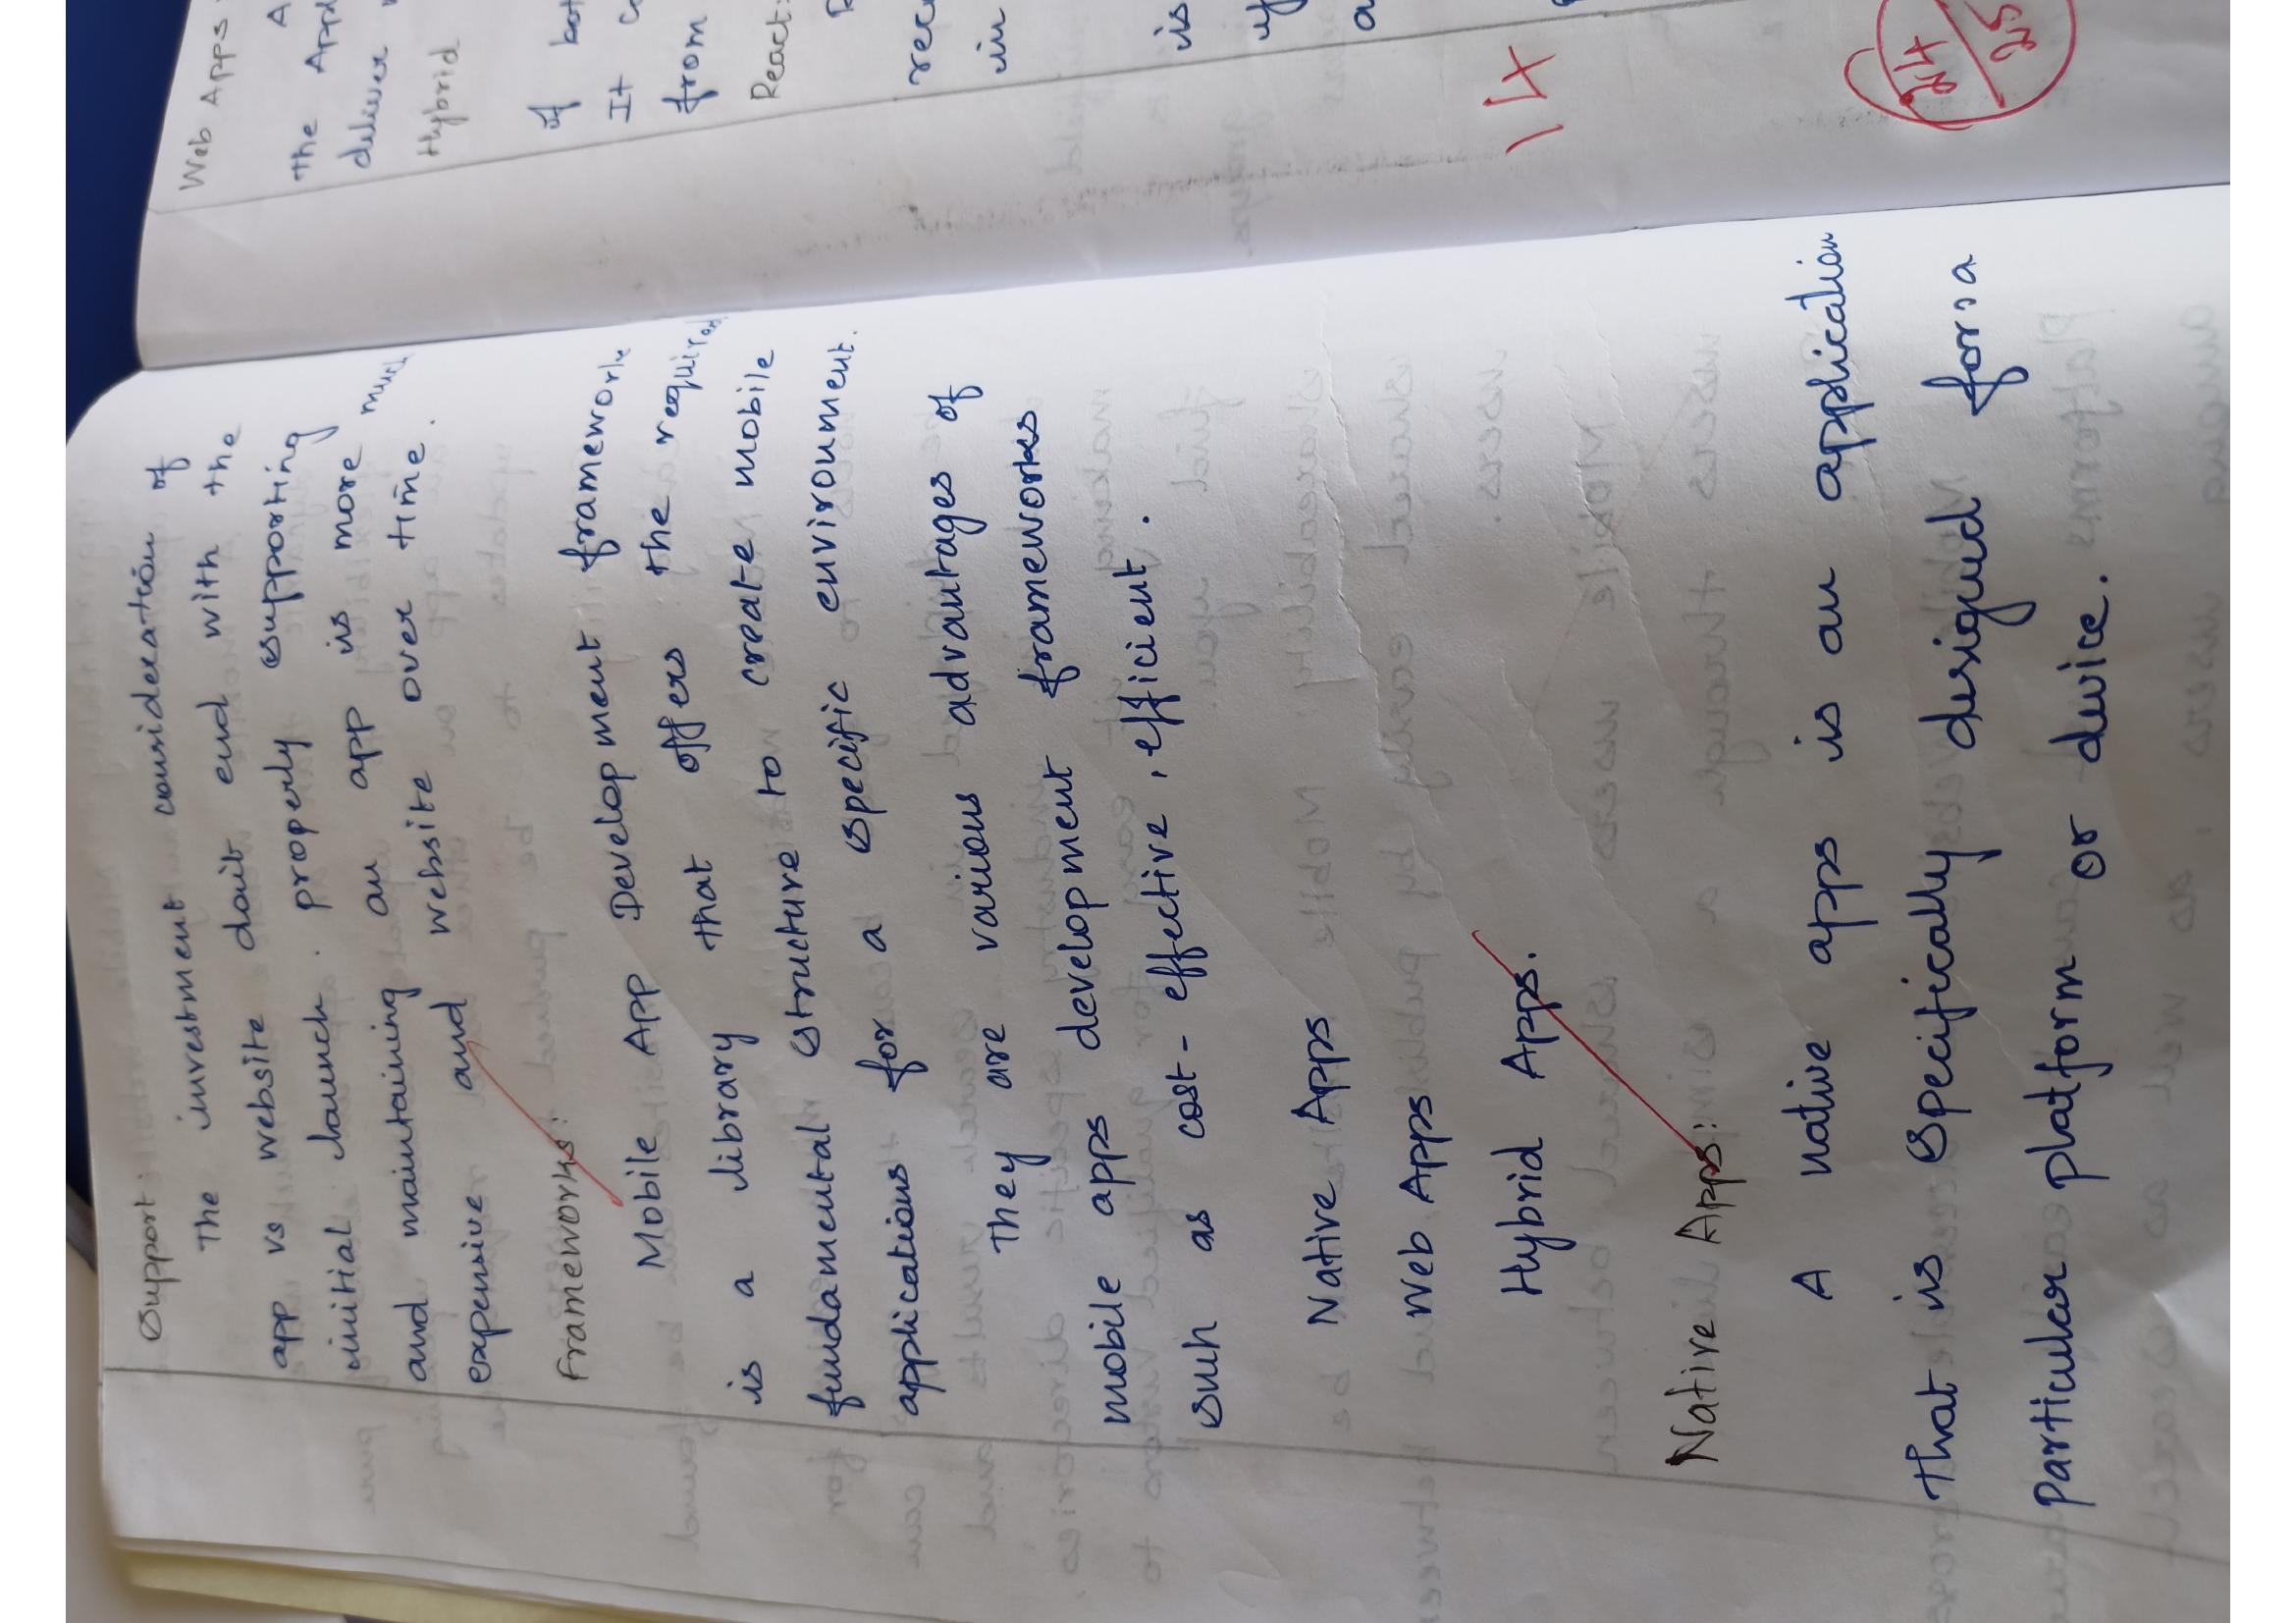 Support:
The investment consideration of
app vs website don't end with the
initial launch. properly supporting
and maintaining an app is more much
expensive and website over time.
Frameworks:
Mobile App Development framework
is a library that offers the required
fundamental structure to create mobile
applications for a specific environment.
They are various advantages of
mobile apps development frameworks
such as cost-effective, efficient.
Native Apps
Web Apps
Hybrid Apps.
Native Apps:
A native apps is an application
that is specifically designed for a
particular platform or device.
Web Apps
A
the
deliver
Hybrid
of
It
from
React:
in
is
14
24
25